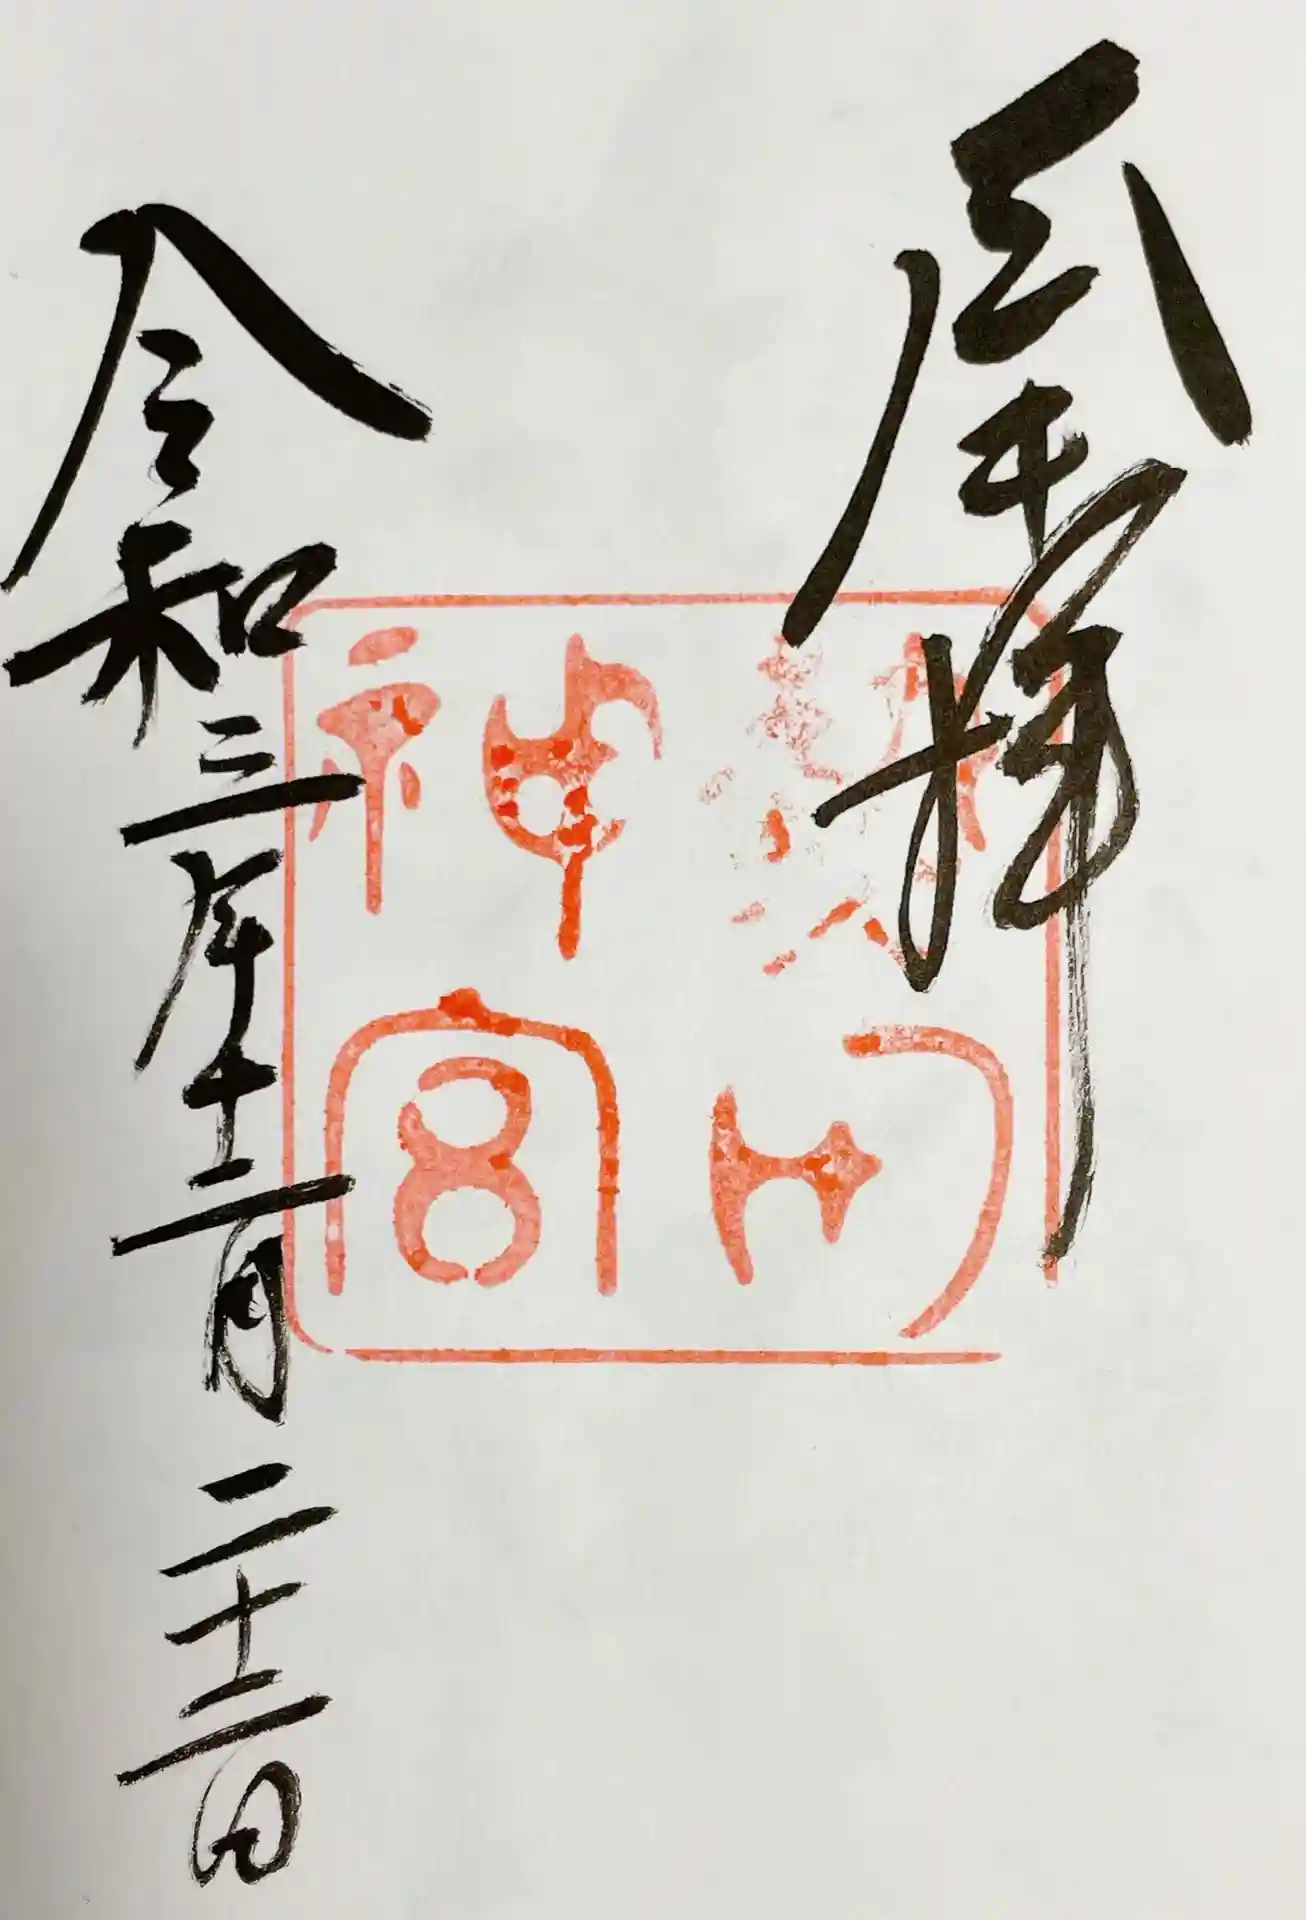 奉拝
熱田
神宮
令和三年十二月二十二日